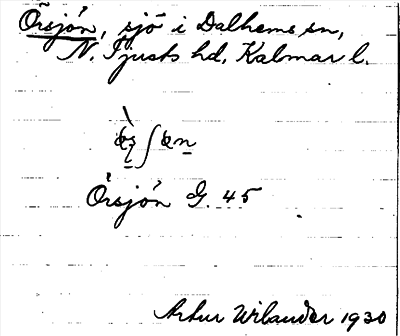 Örsjön, sjö i Dalhems sn,
N. Tjusts hd, Kalmar l.
Örsjön G. 45
Artur Wilander 1930